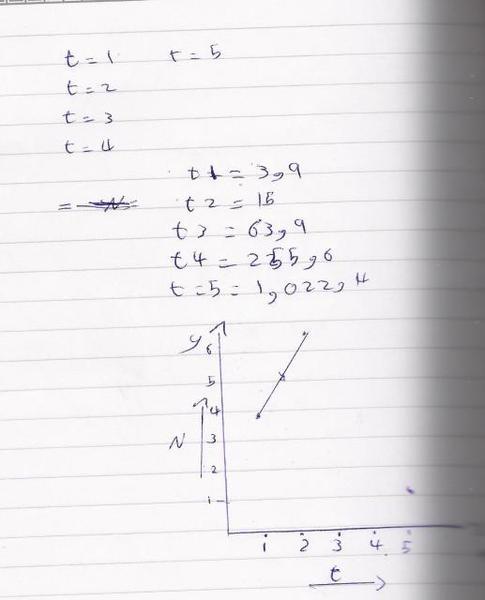 t = 1 t = 5
t = 2
t = 3
t = 4
t 1 = 3,9
t 2 = 15
t 3 = 63,9
t 4 = 255,6
t = 5 = 1,022,4
y
6
5
4
N 3
2
1
1 2 3 4 5
t